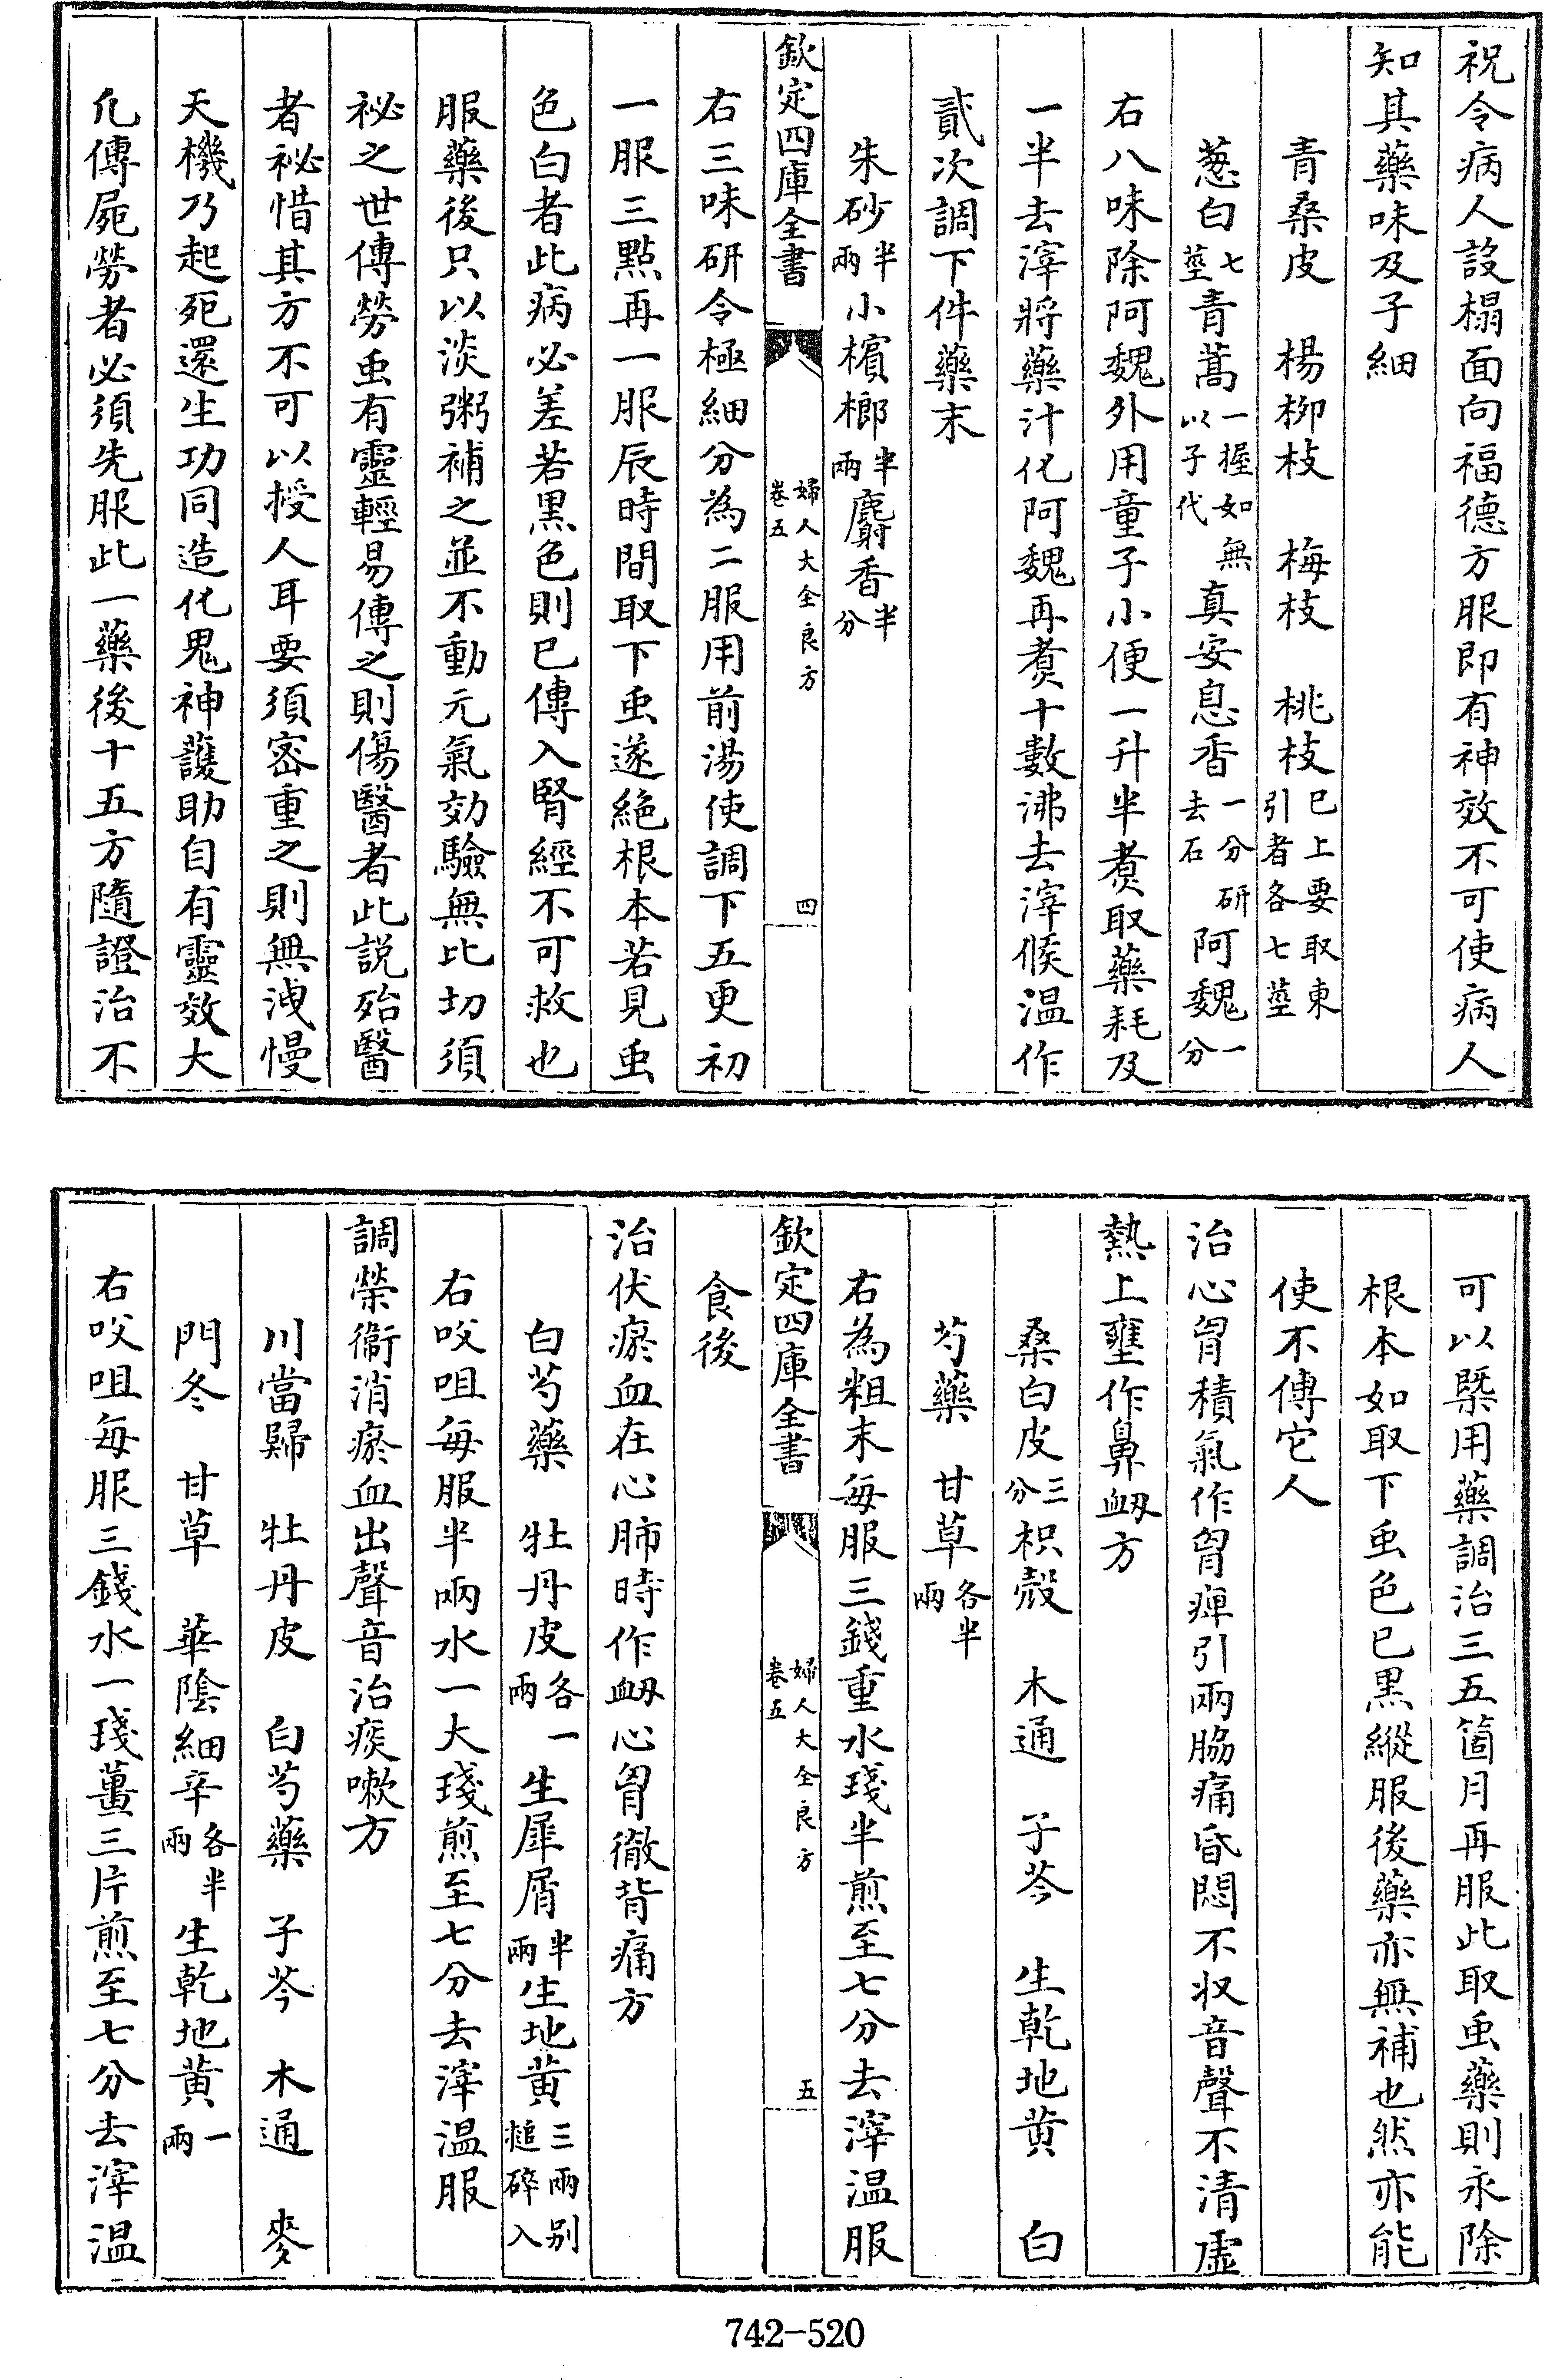 祝令病人設榻面向福德方服即有神效不可使病人
知其藥味及子細
青桑皮　楊栁枝　梅枝　桃枝已上要取東引者各七莖
葱白七莖青蒿一握如無以子代真安息香一分研去石阿魏一分
右八味除阿魏外用童子小便一升半煑取藥耗及
一半去滓將藥汁化阿魏再煑十數沸去滓候温作
貳次調下件藥末
朱砂半兩小檳榔半兩麝香半分
欽定四庫全書　婦人大全良方卷五　四
右三味研令極細分為二服用前湯使調下五更初
一服三點再一服辰時間取下䖝遂絶根本若見䖝
色白者此病必差若黒色則已傳入腎經不可救也
服藥後只以淡粥補之並不動元氣効驗無比切須
祕之世傳勞䖝有靈輕易傳之則傷醫者此説殆醫
者祕惜其方不可以授人耳要須密重之則無洩慢
天機乃起死還生功同造化鬼神護助自有靈效大
凢傳屍勞者必須先服此一藥後十五方隨證治不
可以槩用藥調治三五箇月再服此取䖝藥則永除
根本如取下䖝色已黒縱服後藥亦無補也然亦能
使不傳它人
治心胷積氣作胷痺引兩脇痛昏悶不収音聲不清虛
熱上壅作鼻衂方
桑白皮三分枳殻　木通　子芩　生乾地黄　白
芍藥　甘草各半兩
右為粗末每服三錢重水琖半煎至七分去滓温服
欽定四庫全書　婦人大全良方卷五　五
食後
治伏瘀血在心肺時作衂心胷徹背痛方
白芍藥　牡丹皮各一兩生犀屑半兩生地黄三兩别槌碎入
右㕮咀每服半兩水一大琖煎至七分去滓温服
調榮衞消瘀血出聲音治痰嗽方
川當歸　牡丹皮　白芍藥　子芩　木通　麥
門冬　甘草　華陰細辛各半兩生乾地黄一兩
右㕮咀每服三錢水一琖薑三片煎至七分去滓温
742-520